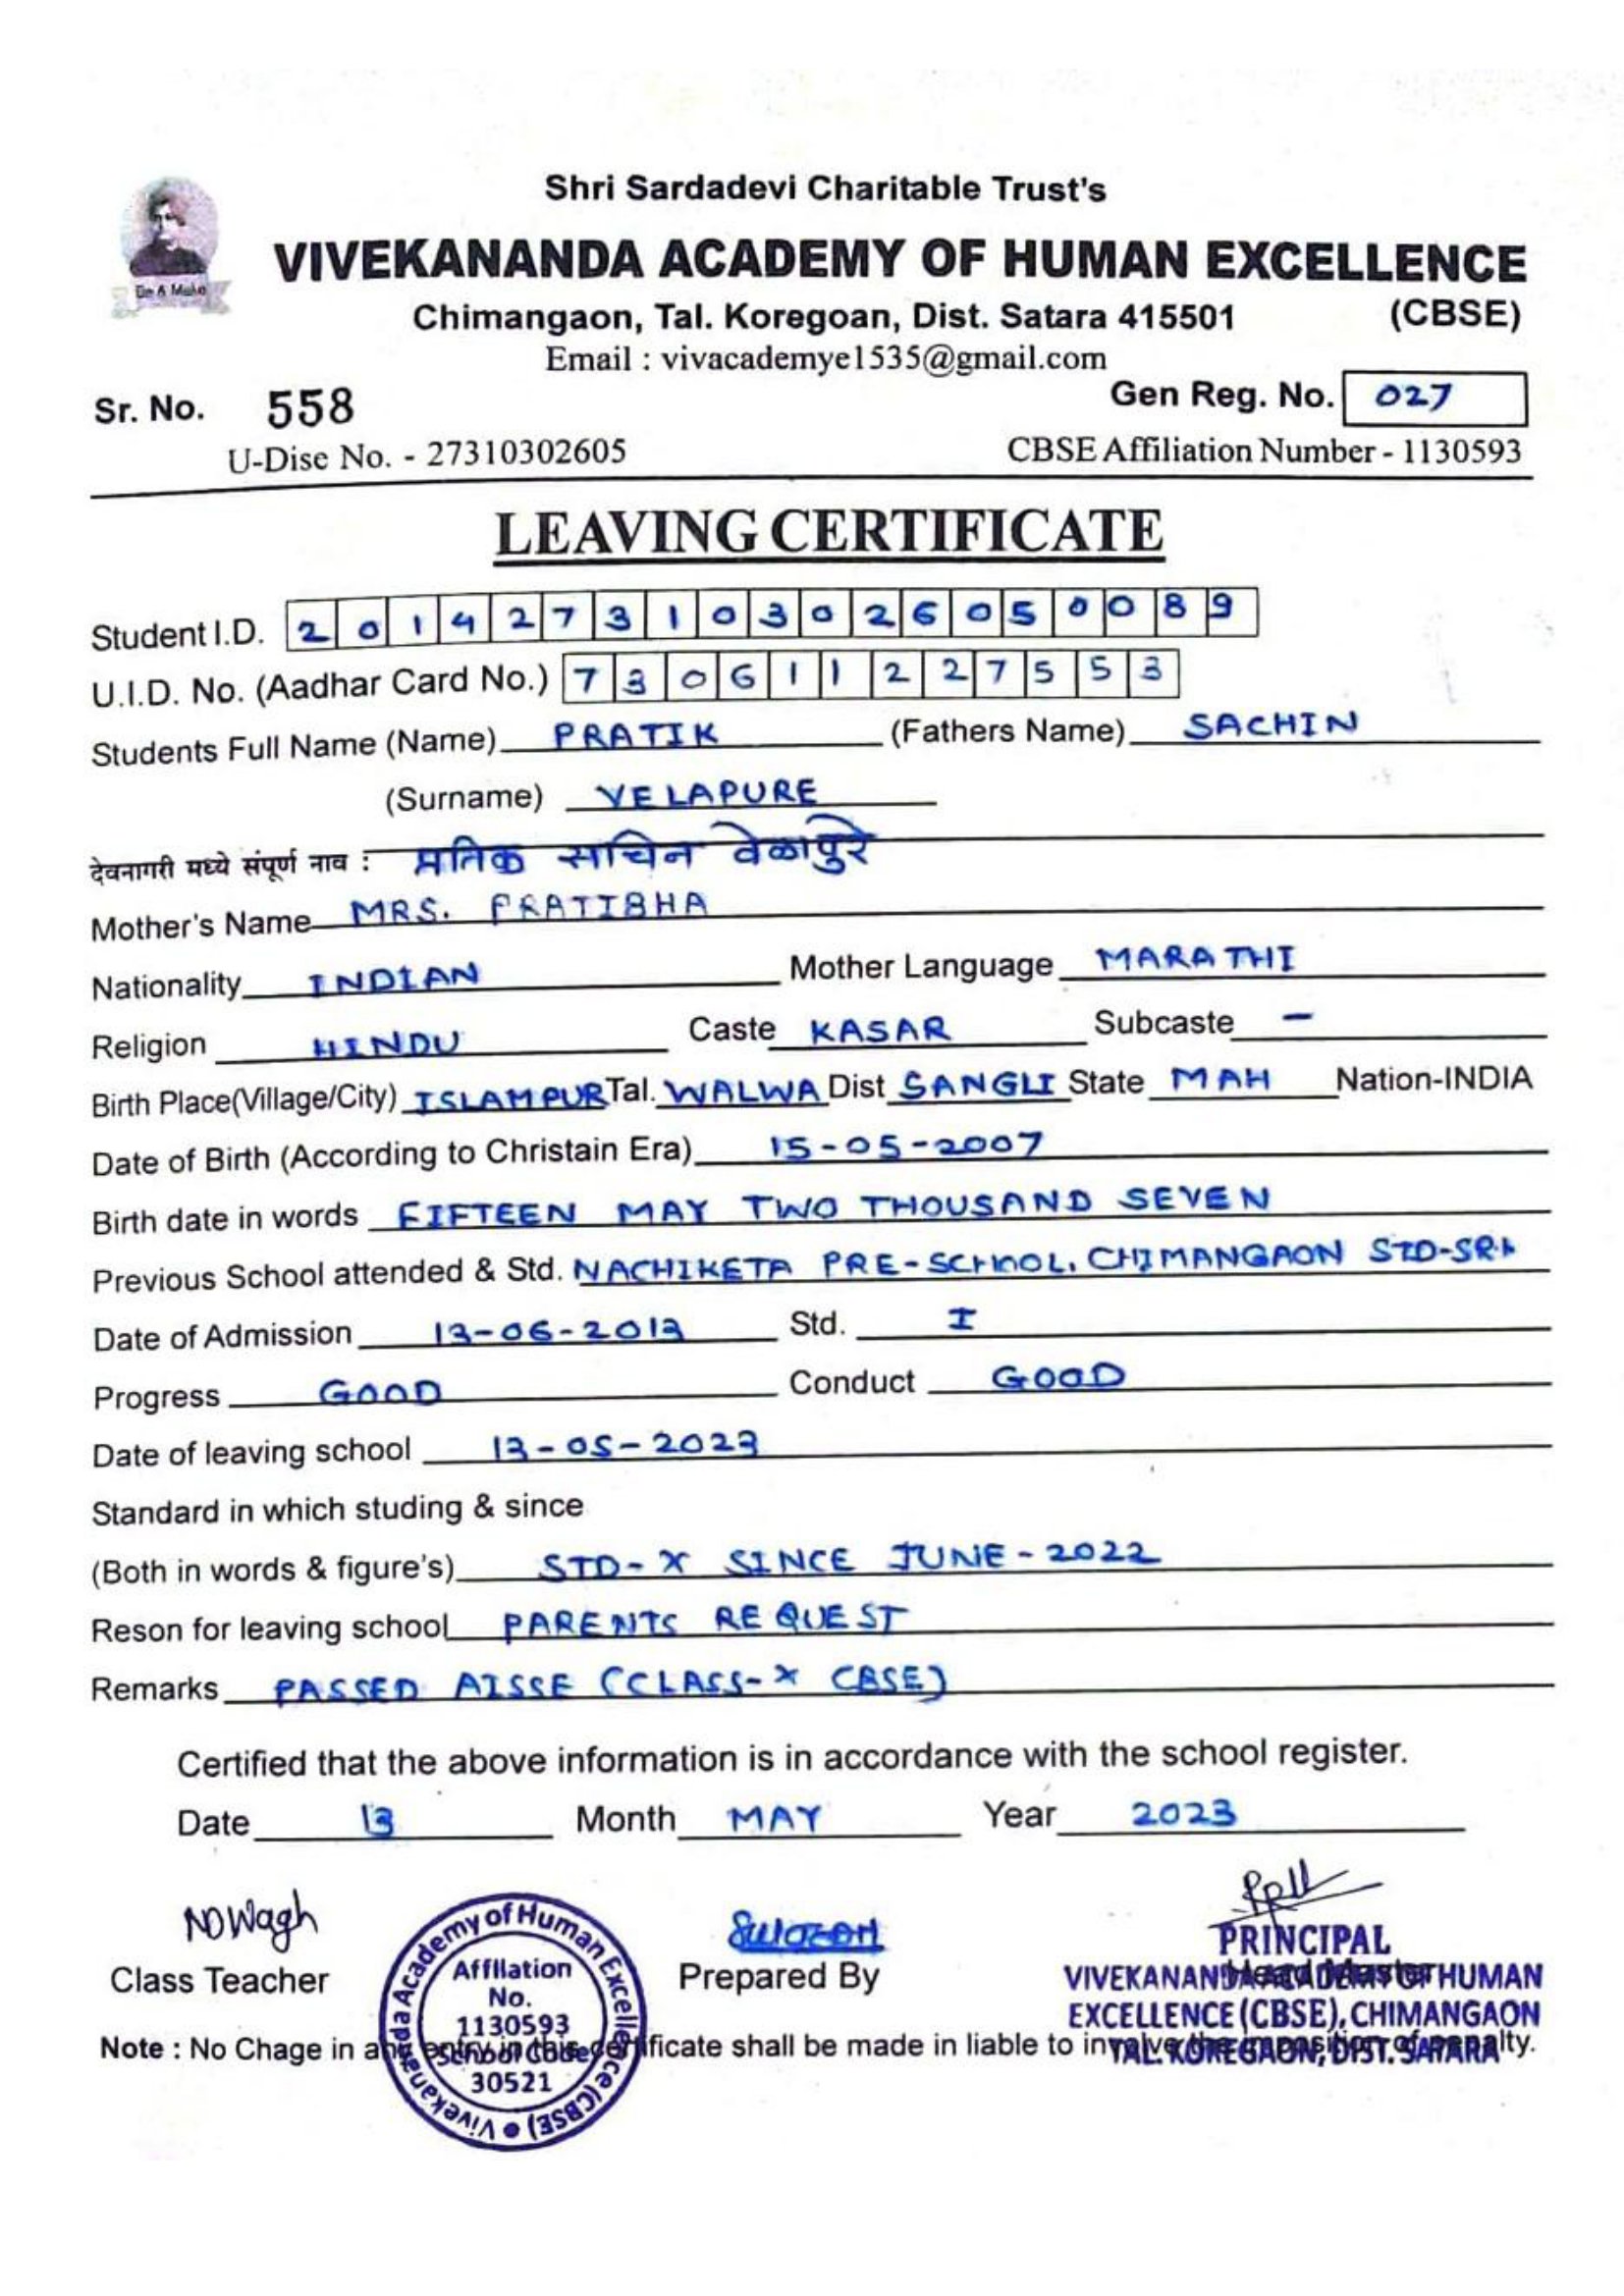 Shri Sardadevi Charitable Trust's
VIVEKANANDA ACADEMY OF HUMAN EXCELLENCE
Chimangaon, Tal. Koregoan, Dist. Satara 415501 (CBSE)
Email : vivacademye1535@gmail.com
Sr. No. 558 Gen Reg. No. 027
U-Dise No. - 27310302605 CBSE Affiliation Number - 1130593
LEAVING CERTIFICATE
Student I.D. 2 0 1 4 2 7 3 1 0 3 0 2 6 0 5 0 0 8 9
U.I.D. No. (Aadhar Card No.) 7 3 0 6 1 1 2 2 7 5 5 3
Students Full Name (Name) PRATIK (Fathers Name) SACHIN
(Surname) VELAPURE
देवनागरी मध्ये संपूर्ण नाव : प्रतिक सचिन वेळापुरे
Mother's Name MRS. PRATIBHA
Nationality INDIAN Mother Language MARATHI
Religion HINDU Caste KASAR Subcaste -
Birth Place(Village/City) ISLAMPUR Tal. WALWA Dist SANGLI State MAH Nation-INDIA
Date of Birth (According to Christain Era) 15-05-2007
Birth date in words FIFTEEN MAY TWO THOUSAND SEVEN
Previous School attended & Std. NACHIKETA PRE-SCHOOL, CHIMANGAON
Date of Admission 13-06-2013 Std. I
Progress GOOD Conduct GOOD
Date of leaving school 13-05-2023
Standard in which studing & since
(Both in words & figure's) STD-X SINCE JUNE-2022
Reson for leaving school PARENTS REQUEST
Remarks PASSED AISSE (CLASS-X CBSE)
Certified that the above information is in accordance with the school register.
Date 13 Month MAY Year 2023
NDWagh
Class Teacher
Vivekananda Academy of Human Excellence (CBSE)
Affilation
No.
1130593
School Code
30521
Prepared By
PRINCIPAL
Head Master
VIVEKANANDA ACADEMY OF HUMAN
EXCELLENCE (CBSE), CHIMANGAON
TAL. KOREGAON, DIST. SATARA
Note : No Chage in any entry in this certificate shall be made in liable to involve the imposition of penalty.